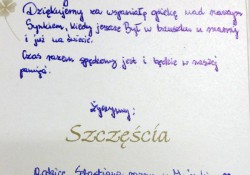 Dziękujemy za wspaniałą opiekę nad naszym
Synkiem, kiedy jeszcze Był w brzuszku u mamy
i już na świecie.
Czas razem spędzony jest i będzie w naszej
pamięci.
Życzymy:
Szczęścia
Rodzice Sebastiana razem z